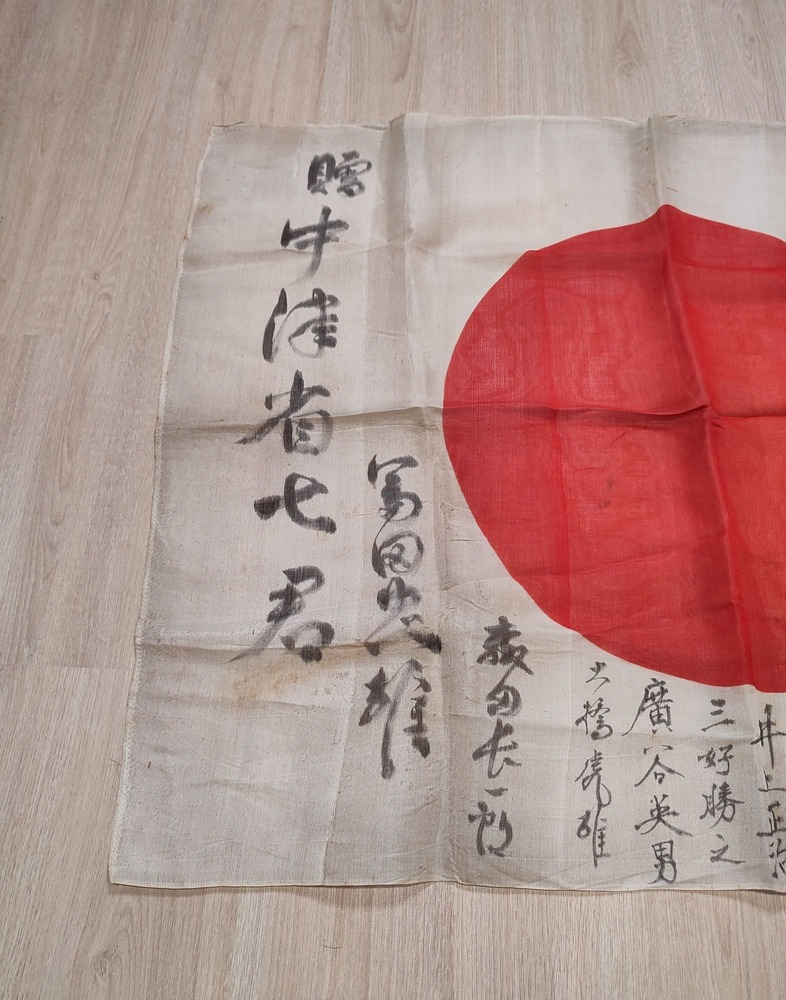 井上正治
三好勝之
廣谷英男
大橋虎雄
田長一郎
富田雄
贈中津省七君